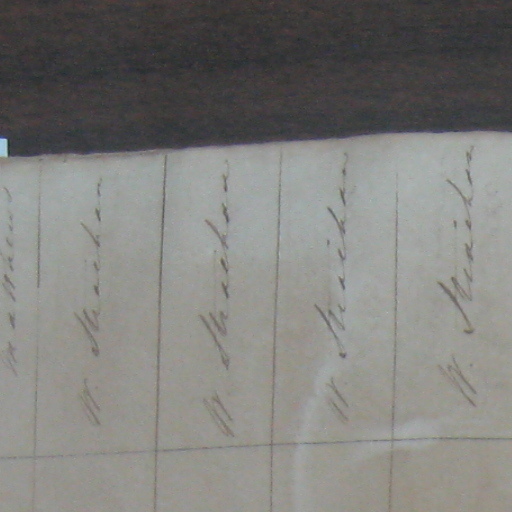 Matthews
W. Strachan
W Strachan
W Strachan
W. Strachan